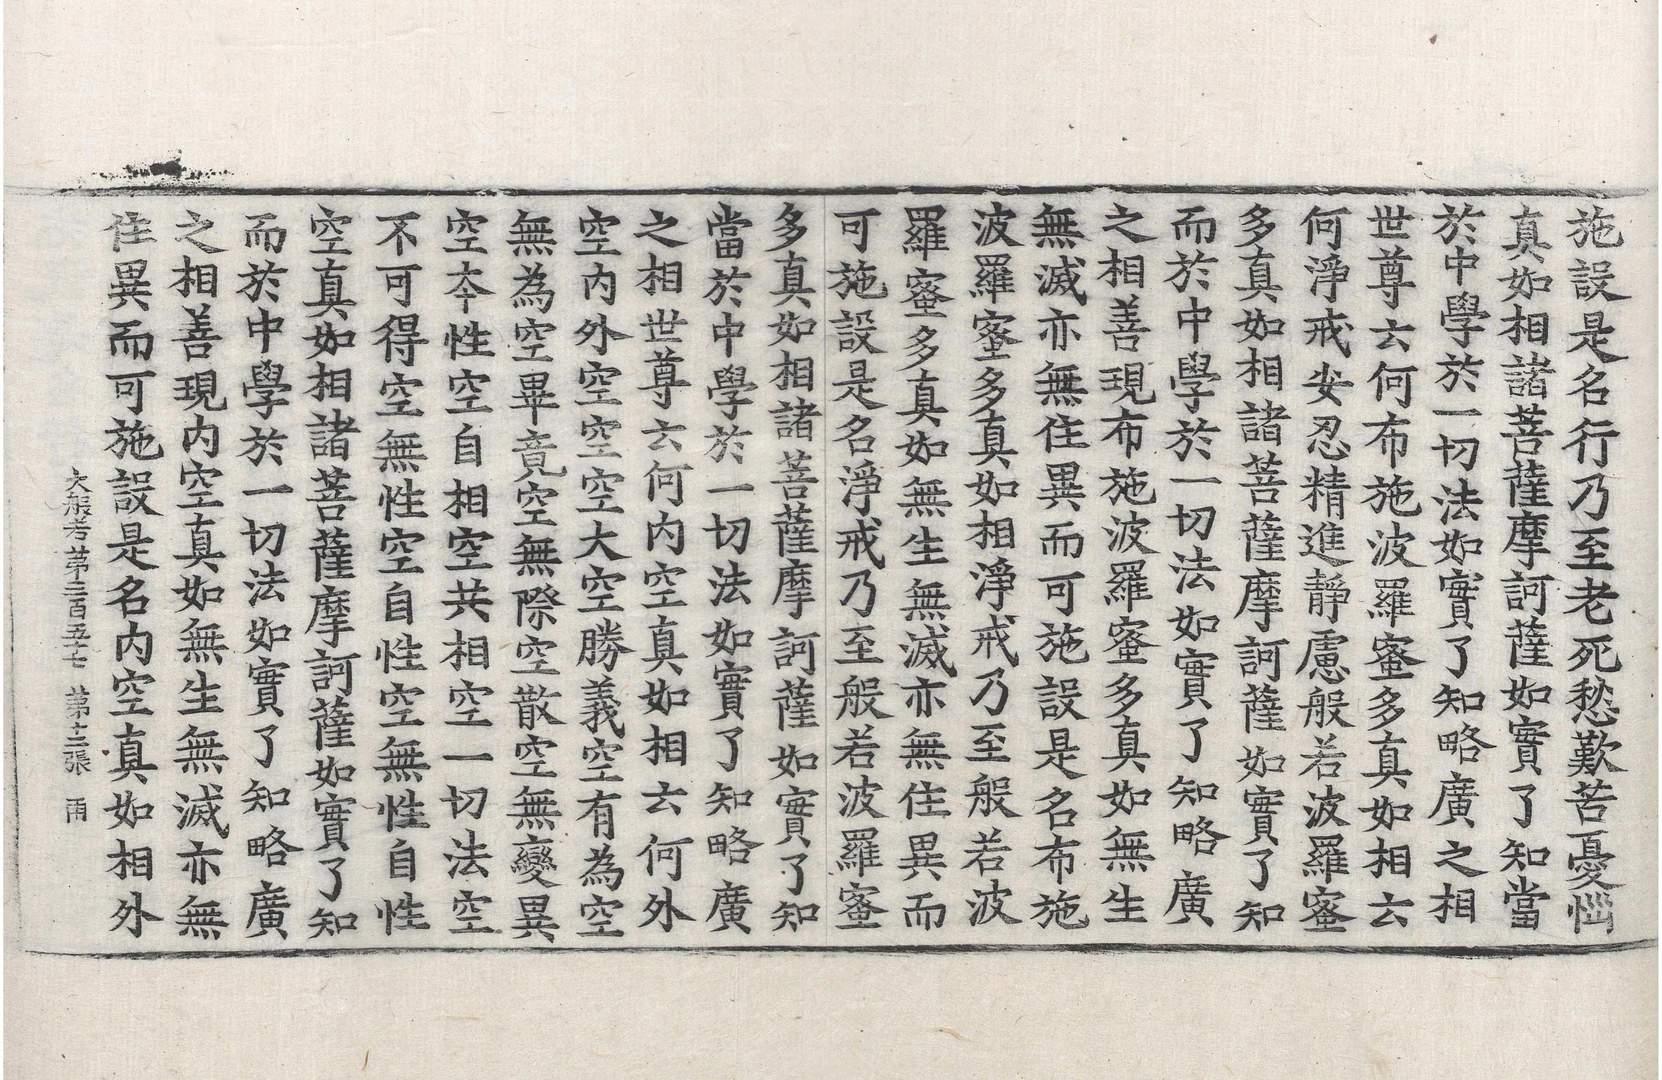 施設是名行乃至老死愁歎苦憂惱
真如相諸菩薩摩訶薩如實了知當
於中學於一切法如實了知略廣之相
世尊云何布施波羅蜜多真如相云
何淨戒安忍精進靜慮般若波羅蜜
多真如相諸菩薩摩訶薩如實了知
而於中學於一切法如實了知略廣
之相善現布施波羅蜜多真如無生
無滅亦無住異而可施設是名布施
波羅蜜多真如相淨戒乃至般若波
羅蜜多真如無生無滅亦無住異而
可施設是名淨戒乃至般若波羅蜜
多真如相諸菩薩摩訶薩如實了知
當於中學於一切法如實了知略廣
之相世尊云何內空真如相云何外
空內外空空空大空勝義空有為空
無為空畢竟空無際空散空無變異
空本性空自相空共相空一切法空
不可得空無性空自性空無性自性
空真如相諸菩薩摩訶薩如實了知
而於中學於一切法如實了知略廣
之相善現內空真如無生無滅亦無
住異而可施設是名內空真如相外
大般若第三百五十七 第十二張 雨